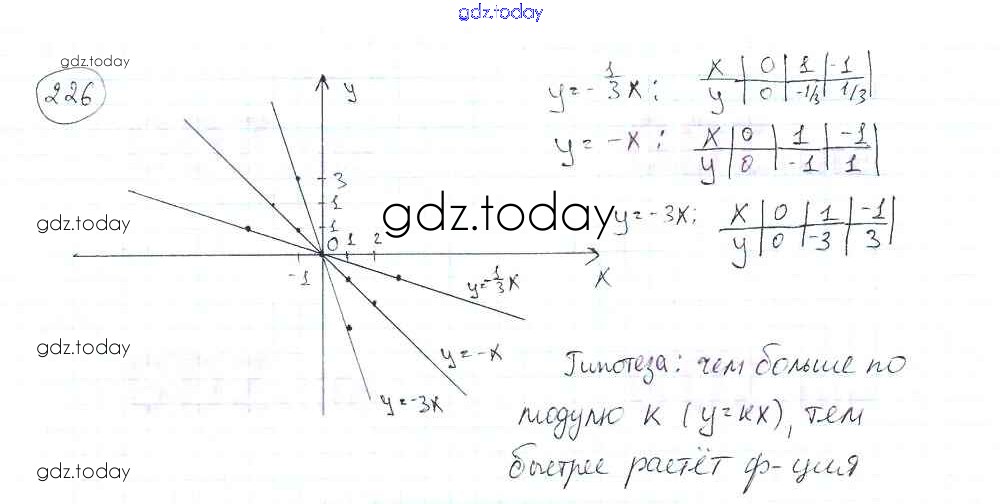 gdz.today
gdz.today
226
y
y=-1/3x; x | 0 | 1 | -1
y | 0 | -1/3 | 1/3
y = -x; x | 0 | 1 | -1
y | 0 | -1 | 1
3
1
1
0 1 2
-1
x
gdz.today
gdz.today
y=-3x; x | 0 | 1 | -1
y | 0 | -3 | 3
y=-1/3x
y=-x
y=-3x
gdz.today
Гипотеза: чем больше по
модулю к (y=кx), тем
быстрее растёт ф-ция
gdz.today